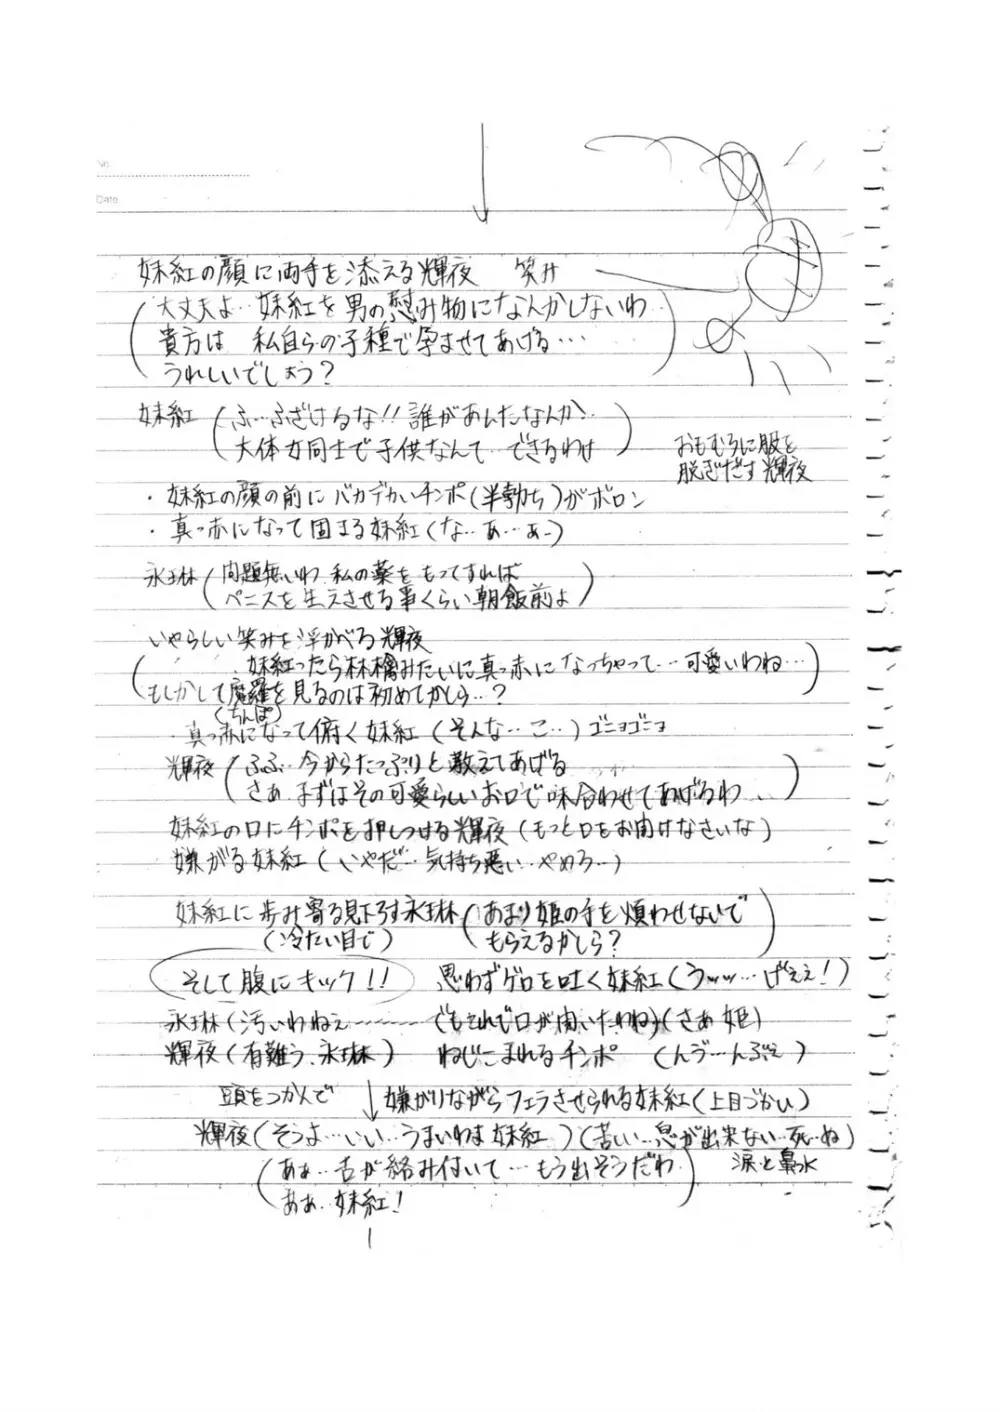 No.
Date
妹紅の顔に両手を添える輝夜　笑み
(大丈夫よ…妹紅を男の慰み物になんかしないわ
貴方は 私自らの子種で孕ませてあげる…
うれしいでしょう？)
妹紅 (ふ…ふざけるな!! 誰があんたなんか…
大体女同士で子供なんて…できるわけ)
おもむろに服を
脱ぎだす輝夜
・妹紅の顔の前にバカデカいチンポ(半勃ち)がボロン
・真っ赤になって固まる妹紅(な…あ…あ…)
永琳(問題無いわ 私の薬をもってすれば
ペニスを生えさせる事くらい朝飯前よ)
いやらしい笑みを浮かべる輝夜
(妹紅ったら林檎みたいに真っ赤になっちゃって…可愛いわね…
もしかして魔羅を見るのは初めてかしら…？)
(ちんぽ)
・真っ赤になって俯く妹紅(そんな…こ…)ゴニョゴニョ
輝夜(ふふ…今からたっぷりと教えてあげる
さぁ まずはその可愛らしいお口で味合わせてあげるわ…)
妹紅の口にチンポを押しつける輝夜(もっと口をお開けなさいな)
嫌がる妹紅(いやだ…気持ち悪い…やめろ…)
妹紅に歩み寄る見下ろす永琳(あまり姫の手を煩わせないで
(冷たい目で)　もらえるかしら？)
そして腹にキック!!　思わずゲロを吐く妹紅(うッッッ…げぇぇ！)
永琳(汚いわねぇ………でもこれで口が開いたわね)(さあ 姫)
輝夜(有難う、永琳)　ねじこまれるチンポ　(んヴ…んぶぇ)
頭をつかんで　↓嫌がりながらフェラさせられる妹紅(上目づかい)
輝夜(そうよ…いい…うまいわよ妹紅)(苦しい…息が出来ない…死…ぬ)
(あぁ…舌が絡み付いて…もう出そうだわ　涙と鼻水
ああ…妹紅！)